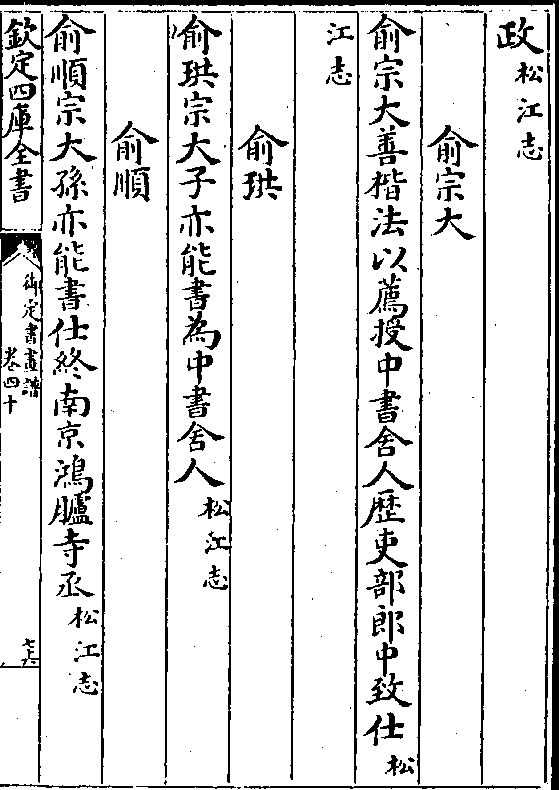 政松江志
俞宗大
俞宗大善楷法以薦授中書舍人歴吏部郎中致仕松
江志
俞珙
俞珙宗大子亦能書為中書舍人松江志
俞順
俞順宗大孫亦能書仕終南京鴻臚寺丞松江志
欽定四庫全書
御定書畫譜
卷四十
七六